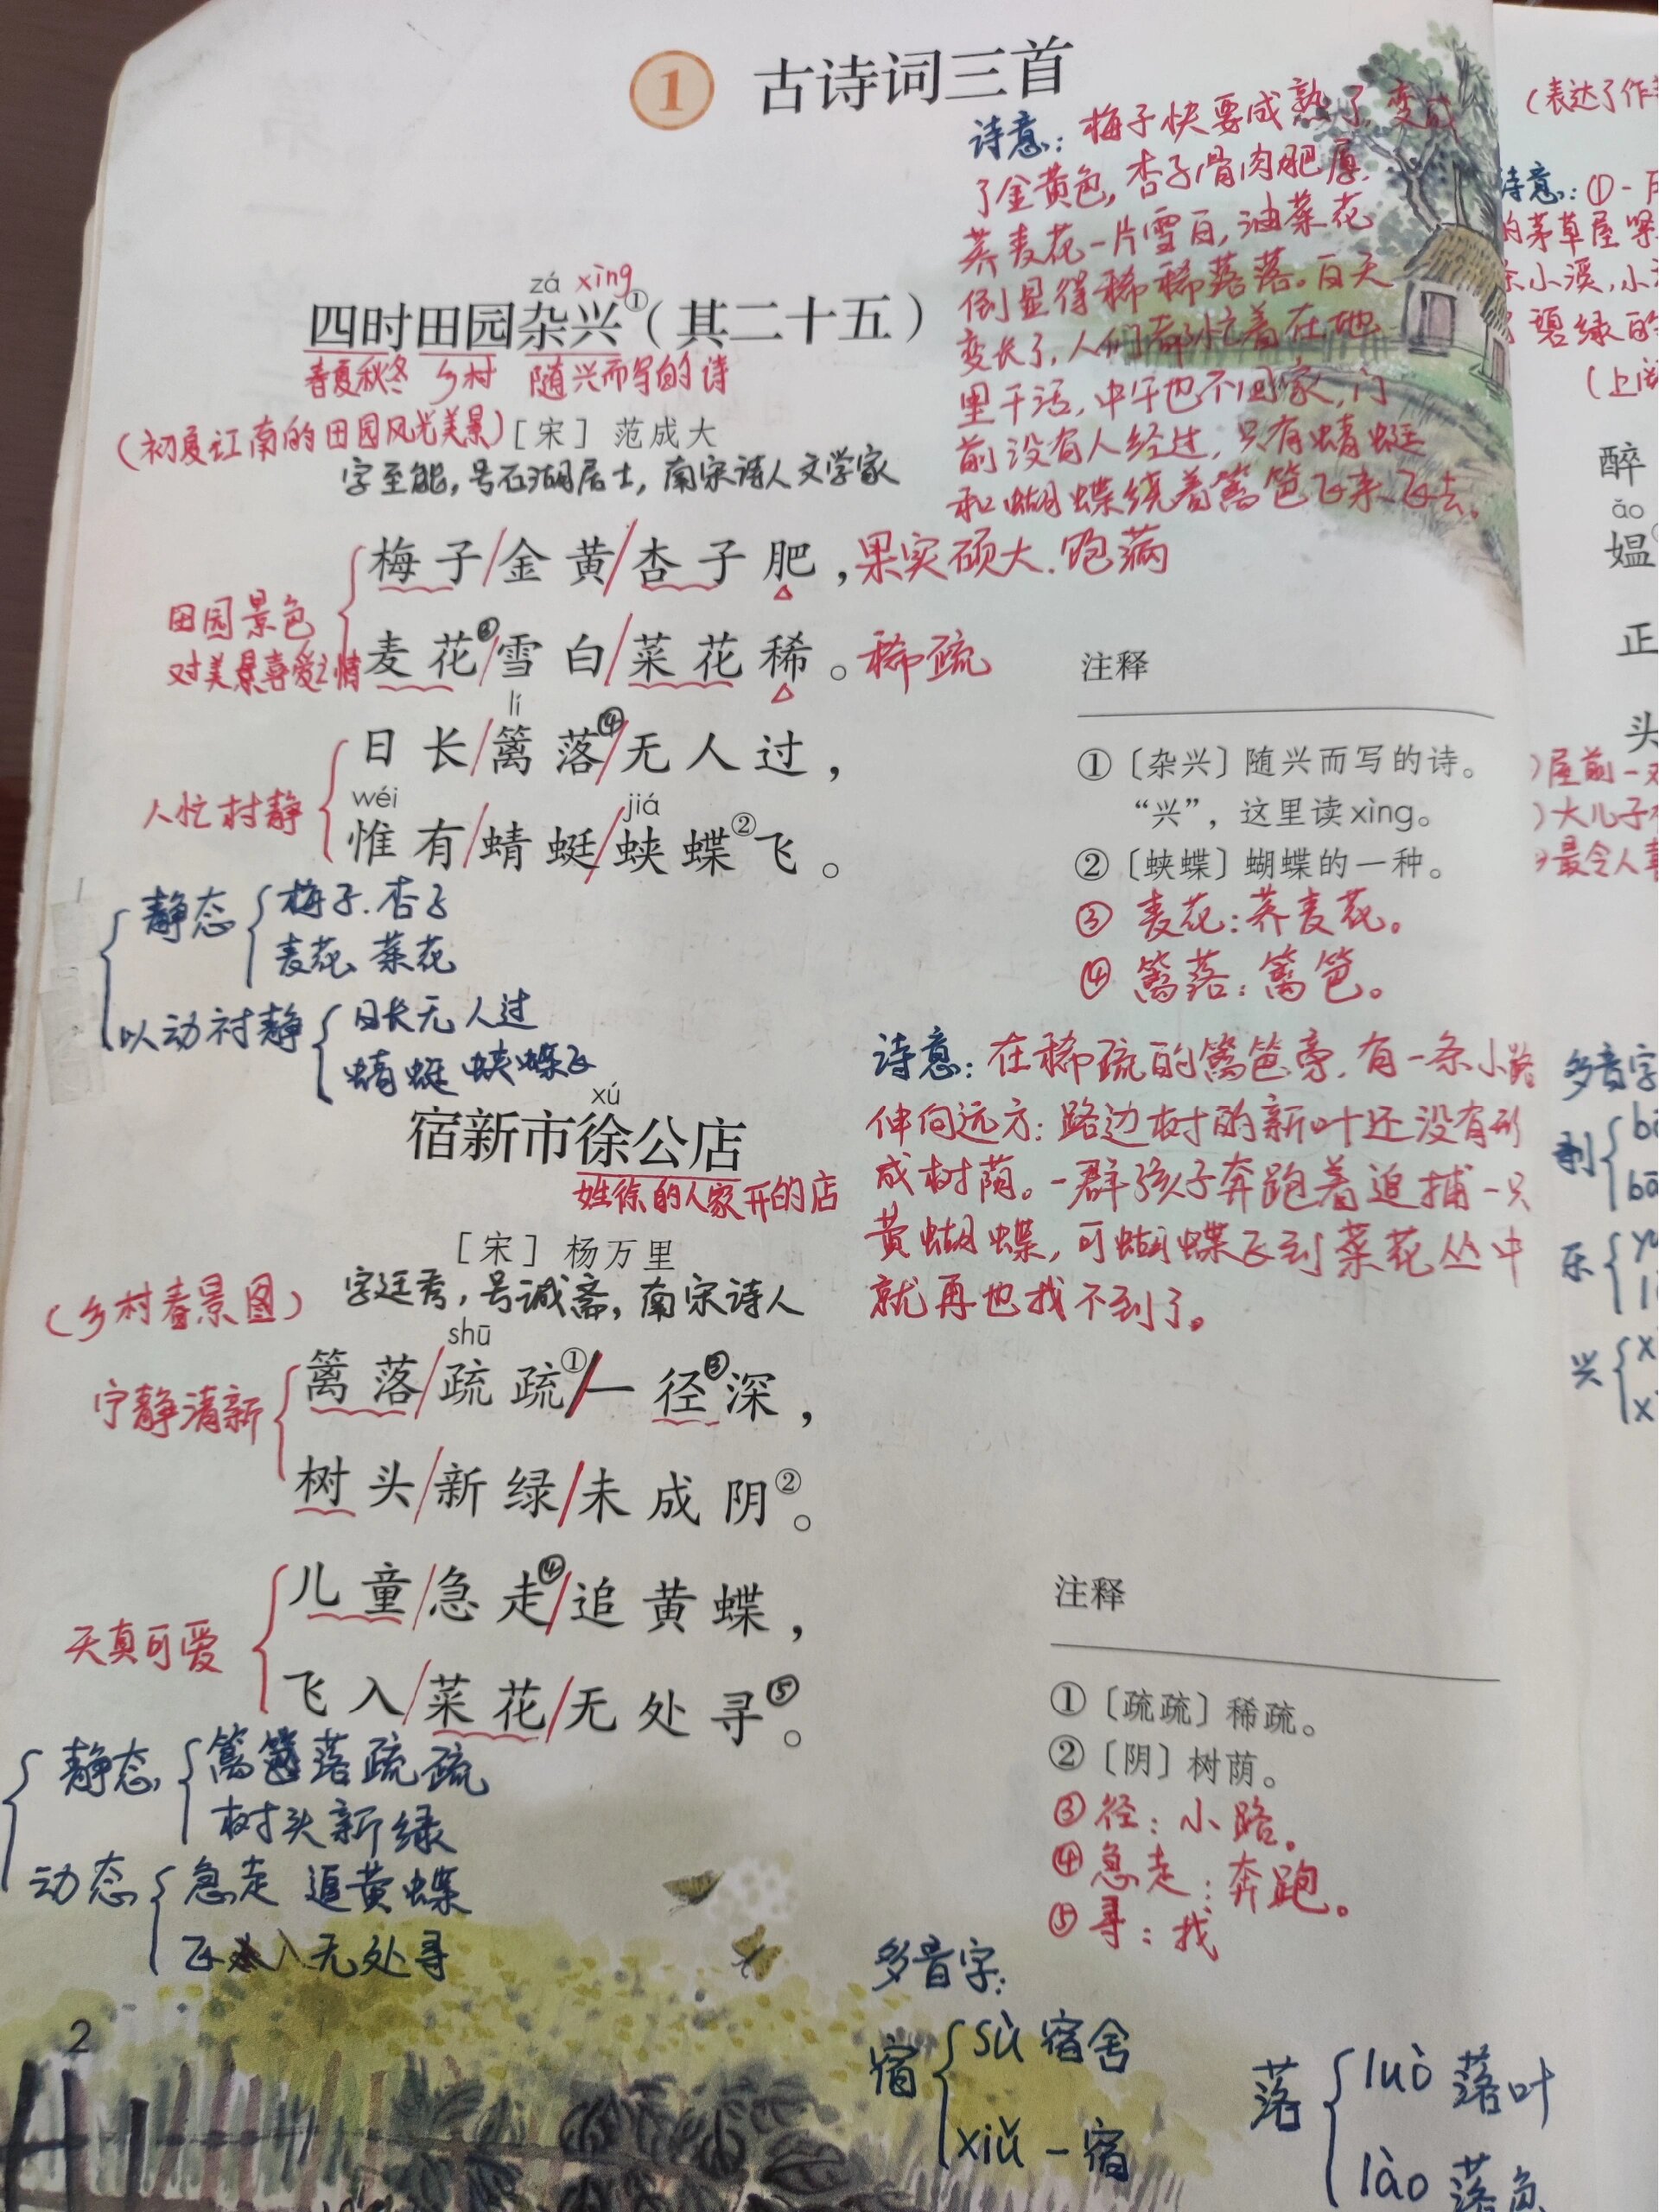 1 古诗词三首
诗意：梅子快要成熟了，变成
了金黄色，杏子骨肉肥厚.
荞麦花一片雪白，油菜花
倒显得稀稀落落。白天
变长了，人们都忙着在地
里干活，中午也不回家，门
前没有人经过，只有蜻蜓
和蝴蝶绕着篱笆飞来飞去。
zá xìng
四时田园杂兴①（其二十五）
春夏秋冬 乡村 随兴而写的诗
（初夏江南的田园风光美景）［宋］范成大
字至能，号石湖居士，南宋诗人文学家
梅子/金黄/杏子肥，果实硕大.饱满
田园景色
对美景喜爱之情
麦花③/雪白/菜花稀。稀疏
lí
日长/篱落④/无人过，
人忙村静
wéi jiá
惟有/蜻蜓/蛱蝶②飞。
注释
①〔杂兴〕随兴而写的诗。
“兴”，这里读xìng。
②〔蛱蝶〕蝴蝶的一种。
③ 麦花：荞麦花。
④ 篱落：篱笆。
静态 梅子.杏子
麦花、菜花
以动衬静 日长无人过
蜻蜓 蛱蝶飞
xú
宿新市徐公店
姓徐的人家开的店
［宋］杨万里
（乡村春景图） 字廷秀，号诚斋，南宋诗人
诗意：在稀疏的篱笆旁.有一条小路
伸向远方：路边树的新叶还没有形
成树荫。一群孩子奔跑着追捕一只
黄蝴蝶，可蝴蝶飞到菜花丛中
就再也找不到了。
shū
篱落/疏疏①/一径③深，
宁静清新
树头/新绿/未成阴②。
儿童/急走④/追黄蝶，
天真可爱
飞入/菜花/无处寻⑤。
注释
①〔疏疏〕稀疏。
②〔阴〕树荫。
③ 径：小路。
④ 急走：奔跑。
⑤ 寻：找
静态 篱落疏疏
树头新绿
动态 急走 追黄蝶
飞入无处寻
多音字：
宿 sù 宿舍
xiǔ 一宿
落 luò 落叶
lào 落色
2
（表达了作
诗意：①一
的茅草屋紧
条小溪，小
碧绿的
（上
醉
ǎo
媪
正
头
屋前一
大儿子
最令人喜
多音字
剥
乐
兴